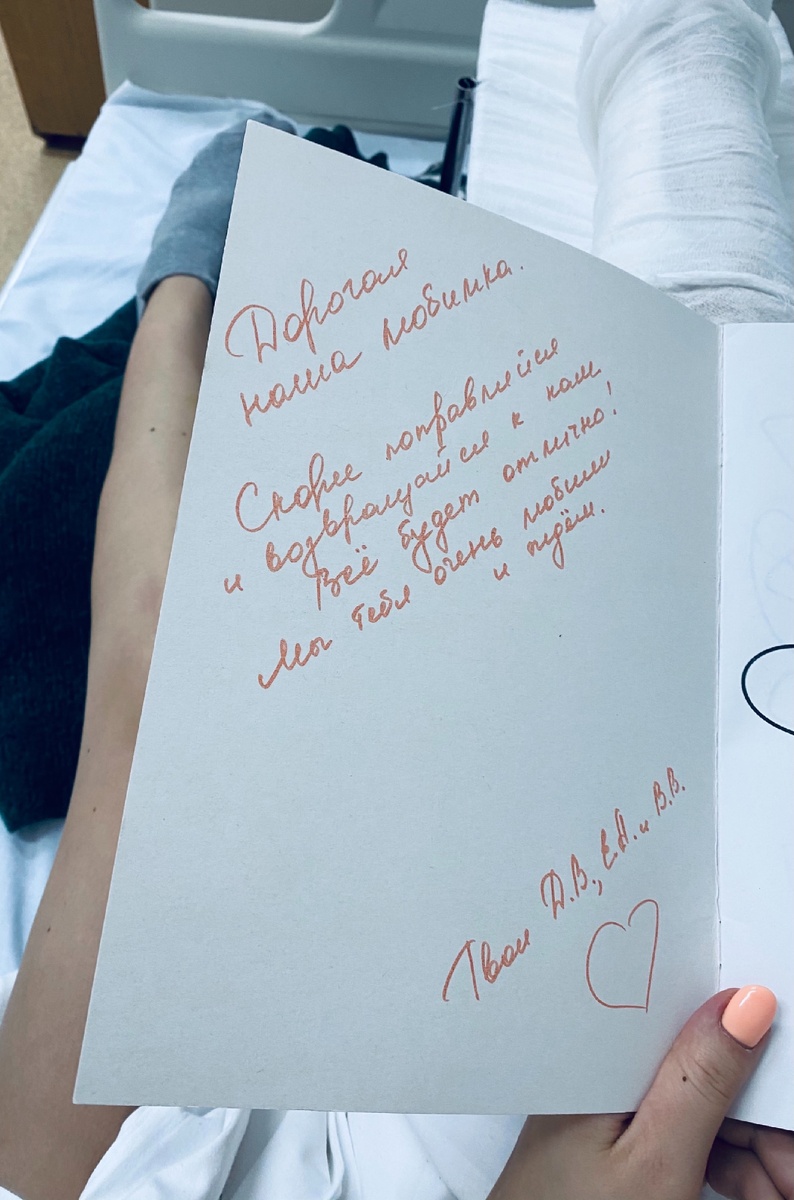 Дорогая
наша любимка.
Скорее поправляйся
и возвращайся к нам.
Всё будет отлично!
Мы тебя очень любим
и ждём.
Твои Д.В., Е.А. и В.В.